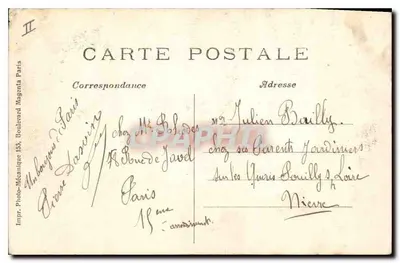 II
CARTE POSTALE
Correspondance
Adresse
Un bonjour de Paris
Pierre
chez Mr
58 Rue de Javel
Paris
15ème
arrondissement
Mr Julien Bailly
chez ses Parents Jardiniers
sur les Pouilly s/ Loire
Nièvre
Impr. Photo-Mécanique 153, Boulevard Magenta Paris